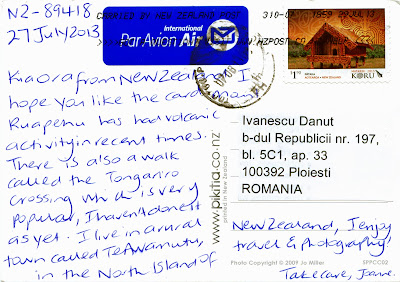 NZ-89418
27 July 2013
CARRIED BY NEW ZEALAND POST
International
Par Avion Air
$1.90
AOTEAROA • NEW ZEALAND
KORU
Kia ora from New Zealand. I
hope you like the card. Mount
Ruapehu has had volcanic
activity in recent times.
There is also a walk
called the Tongariro
Crossing which is very
popular, I haven't done it
as yet. I live in a rural
town called Te Awamutu,
in the North Island of
New Zealand, I enjoy
travel & photography.
Take care, Jane.
www.pikitia.co.nz
printed in New Zealand
Ivanescu Danut
b-dul Republicii nr. 197,
bl. 5C1, ap. 33
100392 Ploiesti
ROMANIA
Photo Copyright © 2009 Jo Miller
SPPCC02